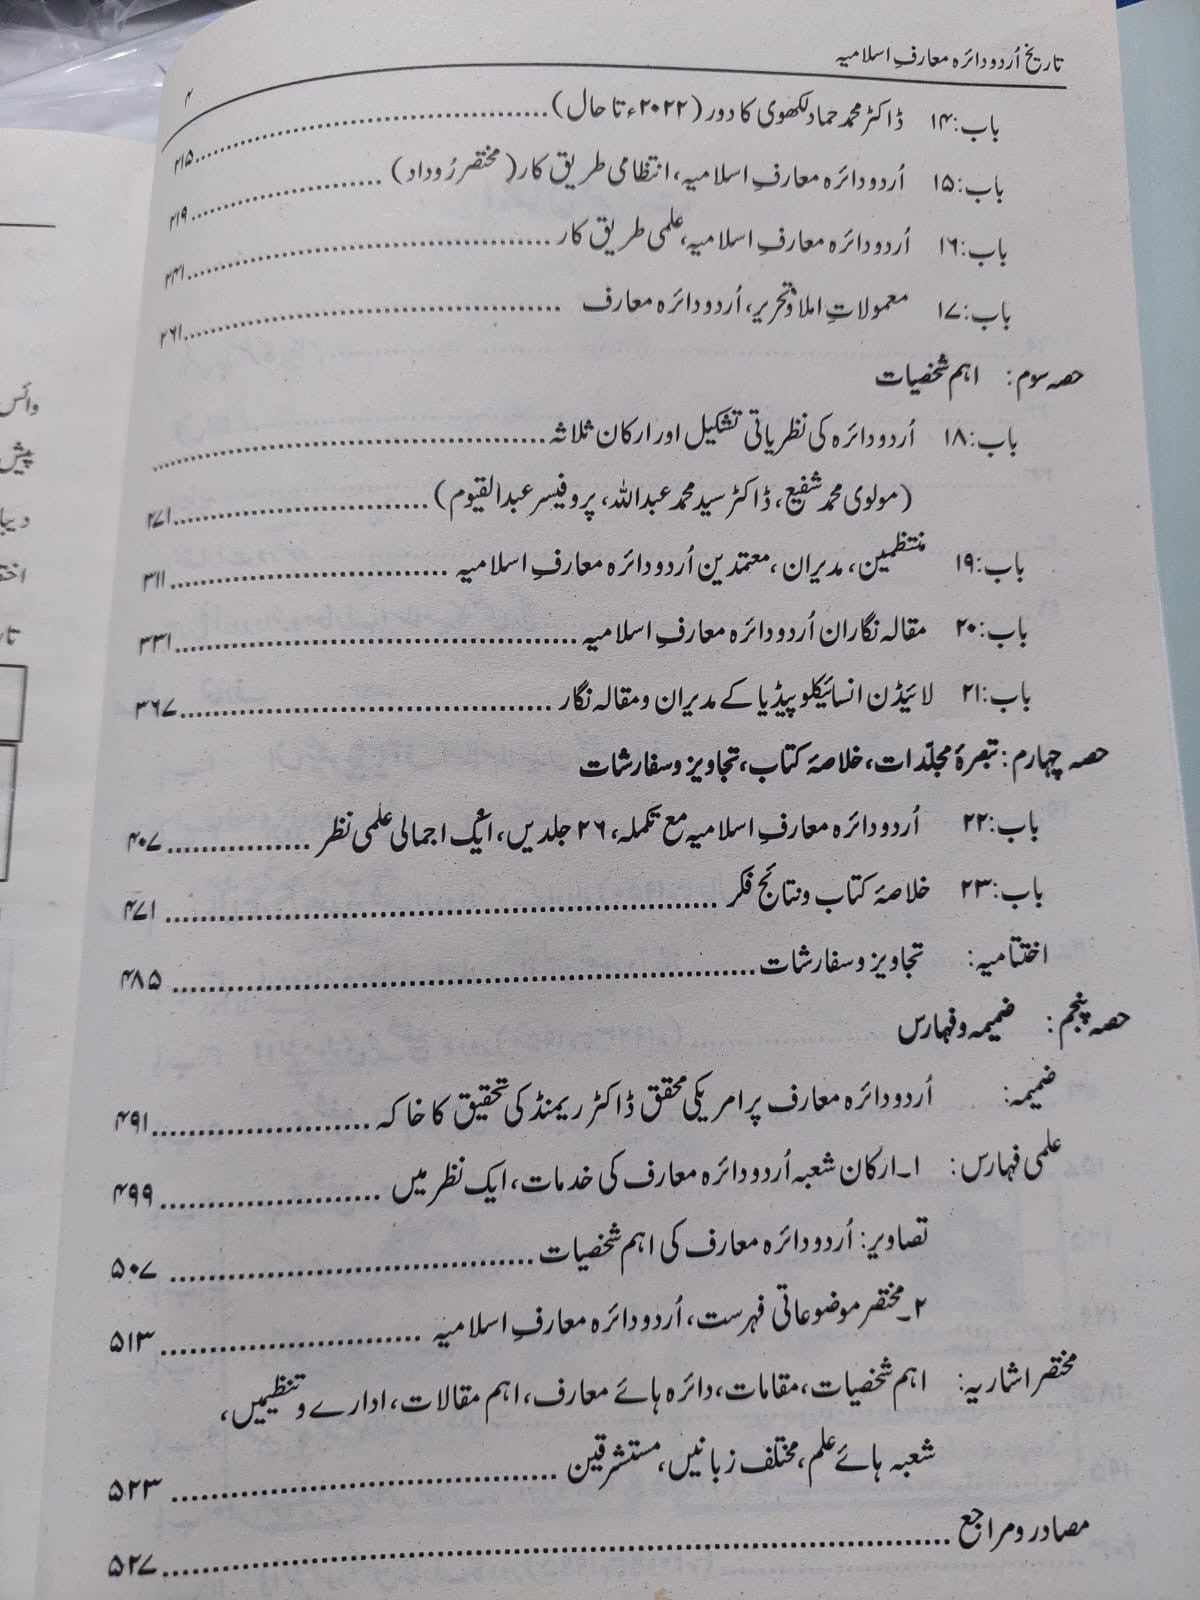 تاریخ اُردو دائرہ معارفِ اسلامیہ
۴
باب:۱۴ ڈاکٹر محمد حماد لکھوی کا دور (۲۰۲۲ء تا حال)........................۲۱۵
باب:۱۵ اُردو دائرہ معارفِ اسلامیہ، انتظامی طریق کار (مختصر رُوداد)........................۲۱۹
باب:۱۶ اُردو دائرہ معارفِ اسلامیہ، علمی طریق کار........................۲۴۱
باب:۱۷ معمولاتِ املا و تحریر، اُردو دائرہ معارف........................۲۶۱
حصہ سوم: اہم شخصیات
باب:۱۸ اُردو دائرہ کی نظریاتی تشکیل اور ارکان ثلاثہ........................
(مولوی محمد شفیع، ڈاکٹر سید محمد عبداللہ، پروفیسر عبدالقیوم)........................۲۷۱
باب:۱۹ منتظمین، مدیران، معتمدین اُردو دائرہ معارفِ اسلامیہ........................۳۱۱
باب:۲۰ مقالہ نگاران اُردو دائرہ معارفِ اسلامیہ........................۳۳۱
باب:۲۱ لائیڈن انسائیکلوپیڈیا کے مدیران و مقالہ نگار........................۳۶۷
حصہ چہارم: تبصرۂ مجلّدات، خلاصۂ کتاب، تجاویز و سفارشات
باب:۲۲ اُردو دائرہ معارفِ اسلامیہ مع تکملہ، ۲۶ جلدیں، ایک اجمالی علمی نظر................۴۰۷
باب:۲۳ خلاصۂ کتاب و نتائج فکر........................۴۷۱
اختتامیہ: تجاویز و سفارشات........................۴۸۵
حصہ پنجم: ضمیمہ و فہارس
ضمیمہ: اُردو دائرہ معارف پر امریکی محقق ڈاکٹر ریمنڈ کی تحقیق کا خاکہ........................۴۹۱
علمی فہارس: ۱۔ارکان شعبہ اُردو دائرہ معارف کی خدمات، ایک نظر میں........................۴۹۹
تصاویر: اُردو دائرہ معارف کی اہم شخصیات........................۵۰۷
۲۔مختصر موضوعاتی فہرست، اُردو دائرہ معارفِ اسلامیہ........................۵۱۳
مختصر اشاریہ: اہم شخصیات، مقامات، دائرہ ہائے معارف، اہم مقالات، ادارے و تنظیمیں،
شعبہ ہائے علم، مختلف زبانیں، مستشرقین........................۵۲۳
مصادر و مراجع........................۵۲۷